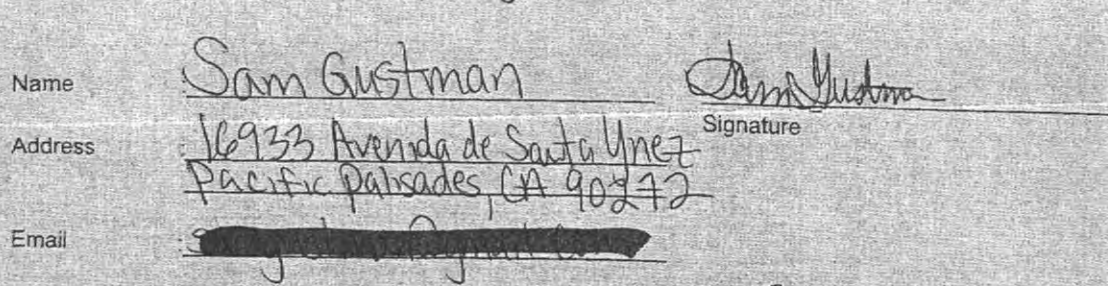 Name Sam Gustman Sam Gustman
Signature
Address 16933 Avenida de Santa Ynez
Pacific Palisades, CA 90272
Email